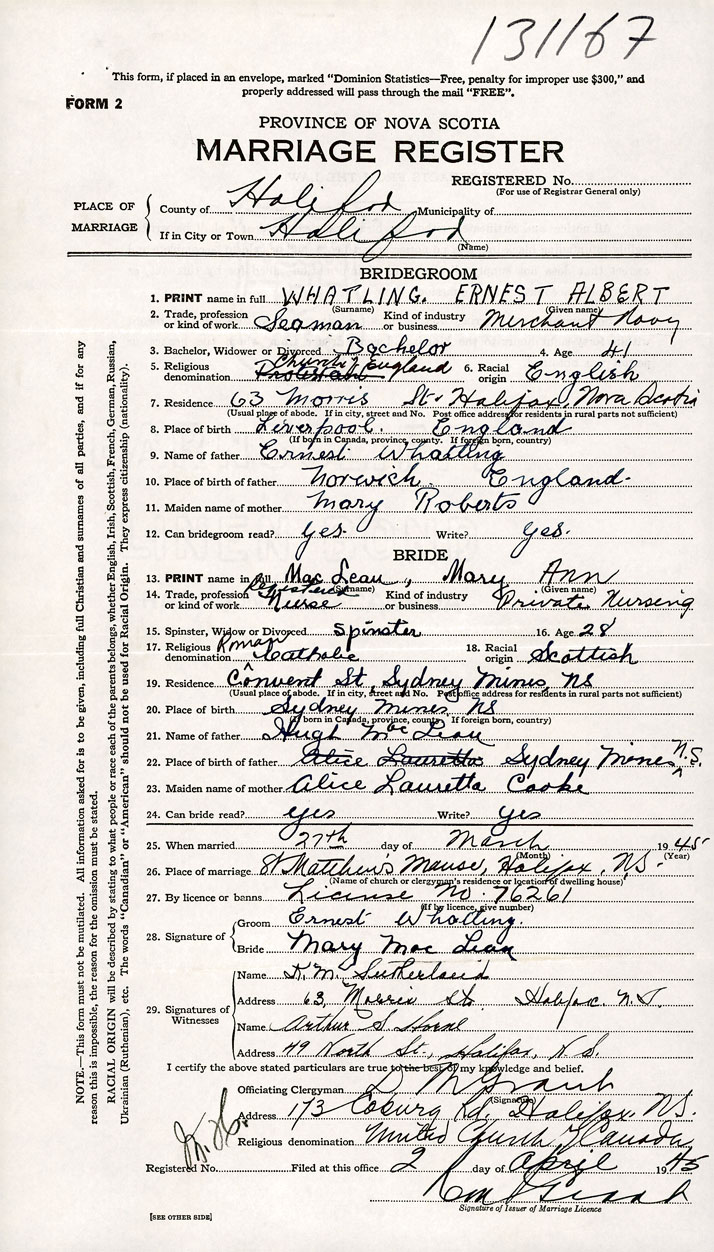 131167
This form, if placed in an envelope, marked "Dominion Statistics—Free, penalty for improper use $300," and
properly addressed will pass through the mail "FREE".
FORM 2
PROVINCE OF NOVA SCOTIA
MARRIAGE REGISTER
REGISTERED No.
(For use of Registrar General only)
PLACE OF MARRIAGE
County of Halifax Municipality of
If in City or Town Halifax
(Name)
BRIDEGROOM
1. PRINT name in full WHATLING. ERNEST ALBERT
(Surname) (Given name)
2. Trade, profession or kind of work Seaman Kind of industry or business Merchant Navy
3. Bachelor, Widower or Divorced Bachelor 4. Age 41
5. Religious denomination Protestant Church of England 6. Racial origin English
7. Residence 63 Morris St. Halifax, Nova Scotia
(Usual place of abode. If in city, street and No. Post office address for residents in rural parts not sufficient)
8. Place of birth Liverpool. England
(If born in Canada, province, county. If foreign born, country)
9. Name of father Ernest Whatling
10. Place of birth of father Norwich. England.
11. Maiden name of mother Mary Roberts
12. Can bridegroom read? Yes. Write? Yes.
BRIDE
13. PRINT name in full Mac Lean, Mary Ann
(Surname) (Given name)
14. Trade, profession or kind of work Registered Nurse Kind of industry or business Private Nursing
15. Spinster, Widow or Divorced Spinster 16. Age 28
17. Religious denomination Roman Catholic 18. Racial origin Scottish
19. Residence Convent St, Sydney Mines, NS
(Usual place of abode. If in city, street and No. Post office address for residents in rural parts not sufficient)
20. Place of birth Sydney Mines NS
(If born in Canada, province, county. If foreign born, country)
21. Name of father Hugh MacLean
22. Place of birth of father Alice Lauretta Sydney Mines N.S.
23. Maiden name of mother Alice Lauretta Cooke
24. Can bride read? yes Write? yes
25. When married 27th day of March 1945
(Month) (Year)
26. Place of marriage St Matthew's Manse, Halifax, NS.
(Name of church or clergyman's residence or location of dwelling house)
27. By licence or banns License No. 76261
(If by licence, give number)
28. Signature of
Groom Ernest Whatling.
Bride Mary MacLean
29. Signatures of Witnesses
Name K. M. Sutherland
Address 63, Morris St. Halifax. N.S.
Name Arthur S. Horne
Address 49 North St., Halifax, N.S.
I certify the above stated particulars are true to the best of my knowledge and belief.
Officiating Clergyman D M Grant
(Signature)
Address 173 Coburg Rd, Halifax. NS.
Religious denomination United Church of Canada
Registered No. Filed at this office 2 day of April 1945
Signature of Issuer of Marriage Licence
[SEE OTHER SIDE]
NOTE.—This form must not be mutilated. All information asked for is to be given, including full Christian and surnames of all parties, and if for any
reason this is impossible, the reason for the omission must be stated.
RACIAL ORIGIN will be described by stating to what people or race each of the parents belongs, whether English, Irish, Scottish, French, German, Russian,
Ukrainian (Ruthenian), etc. The words "Canadian" or "American" should not be used for Racial Origin. They express citizenship (nationality).